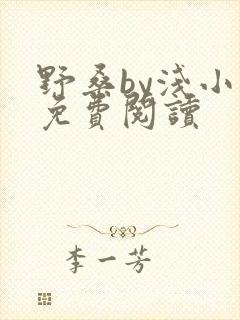 野桑by浅小
免費閱讀
李一芳